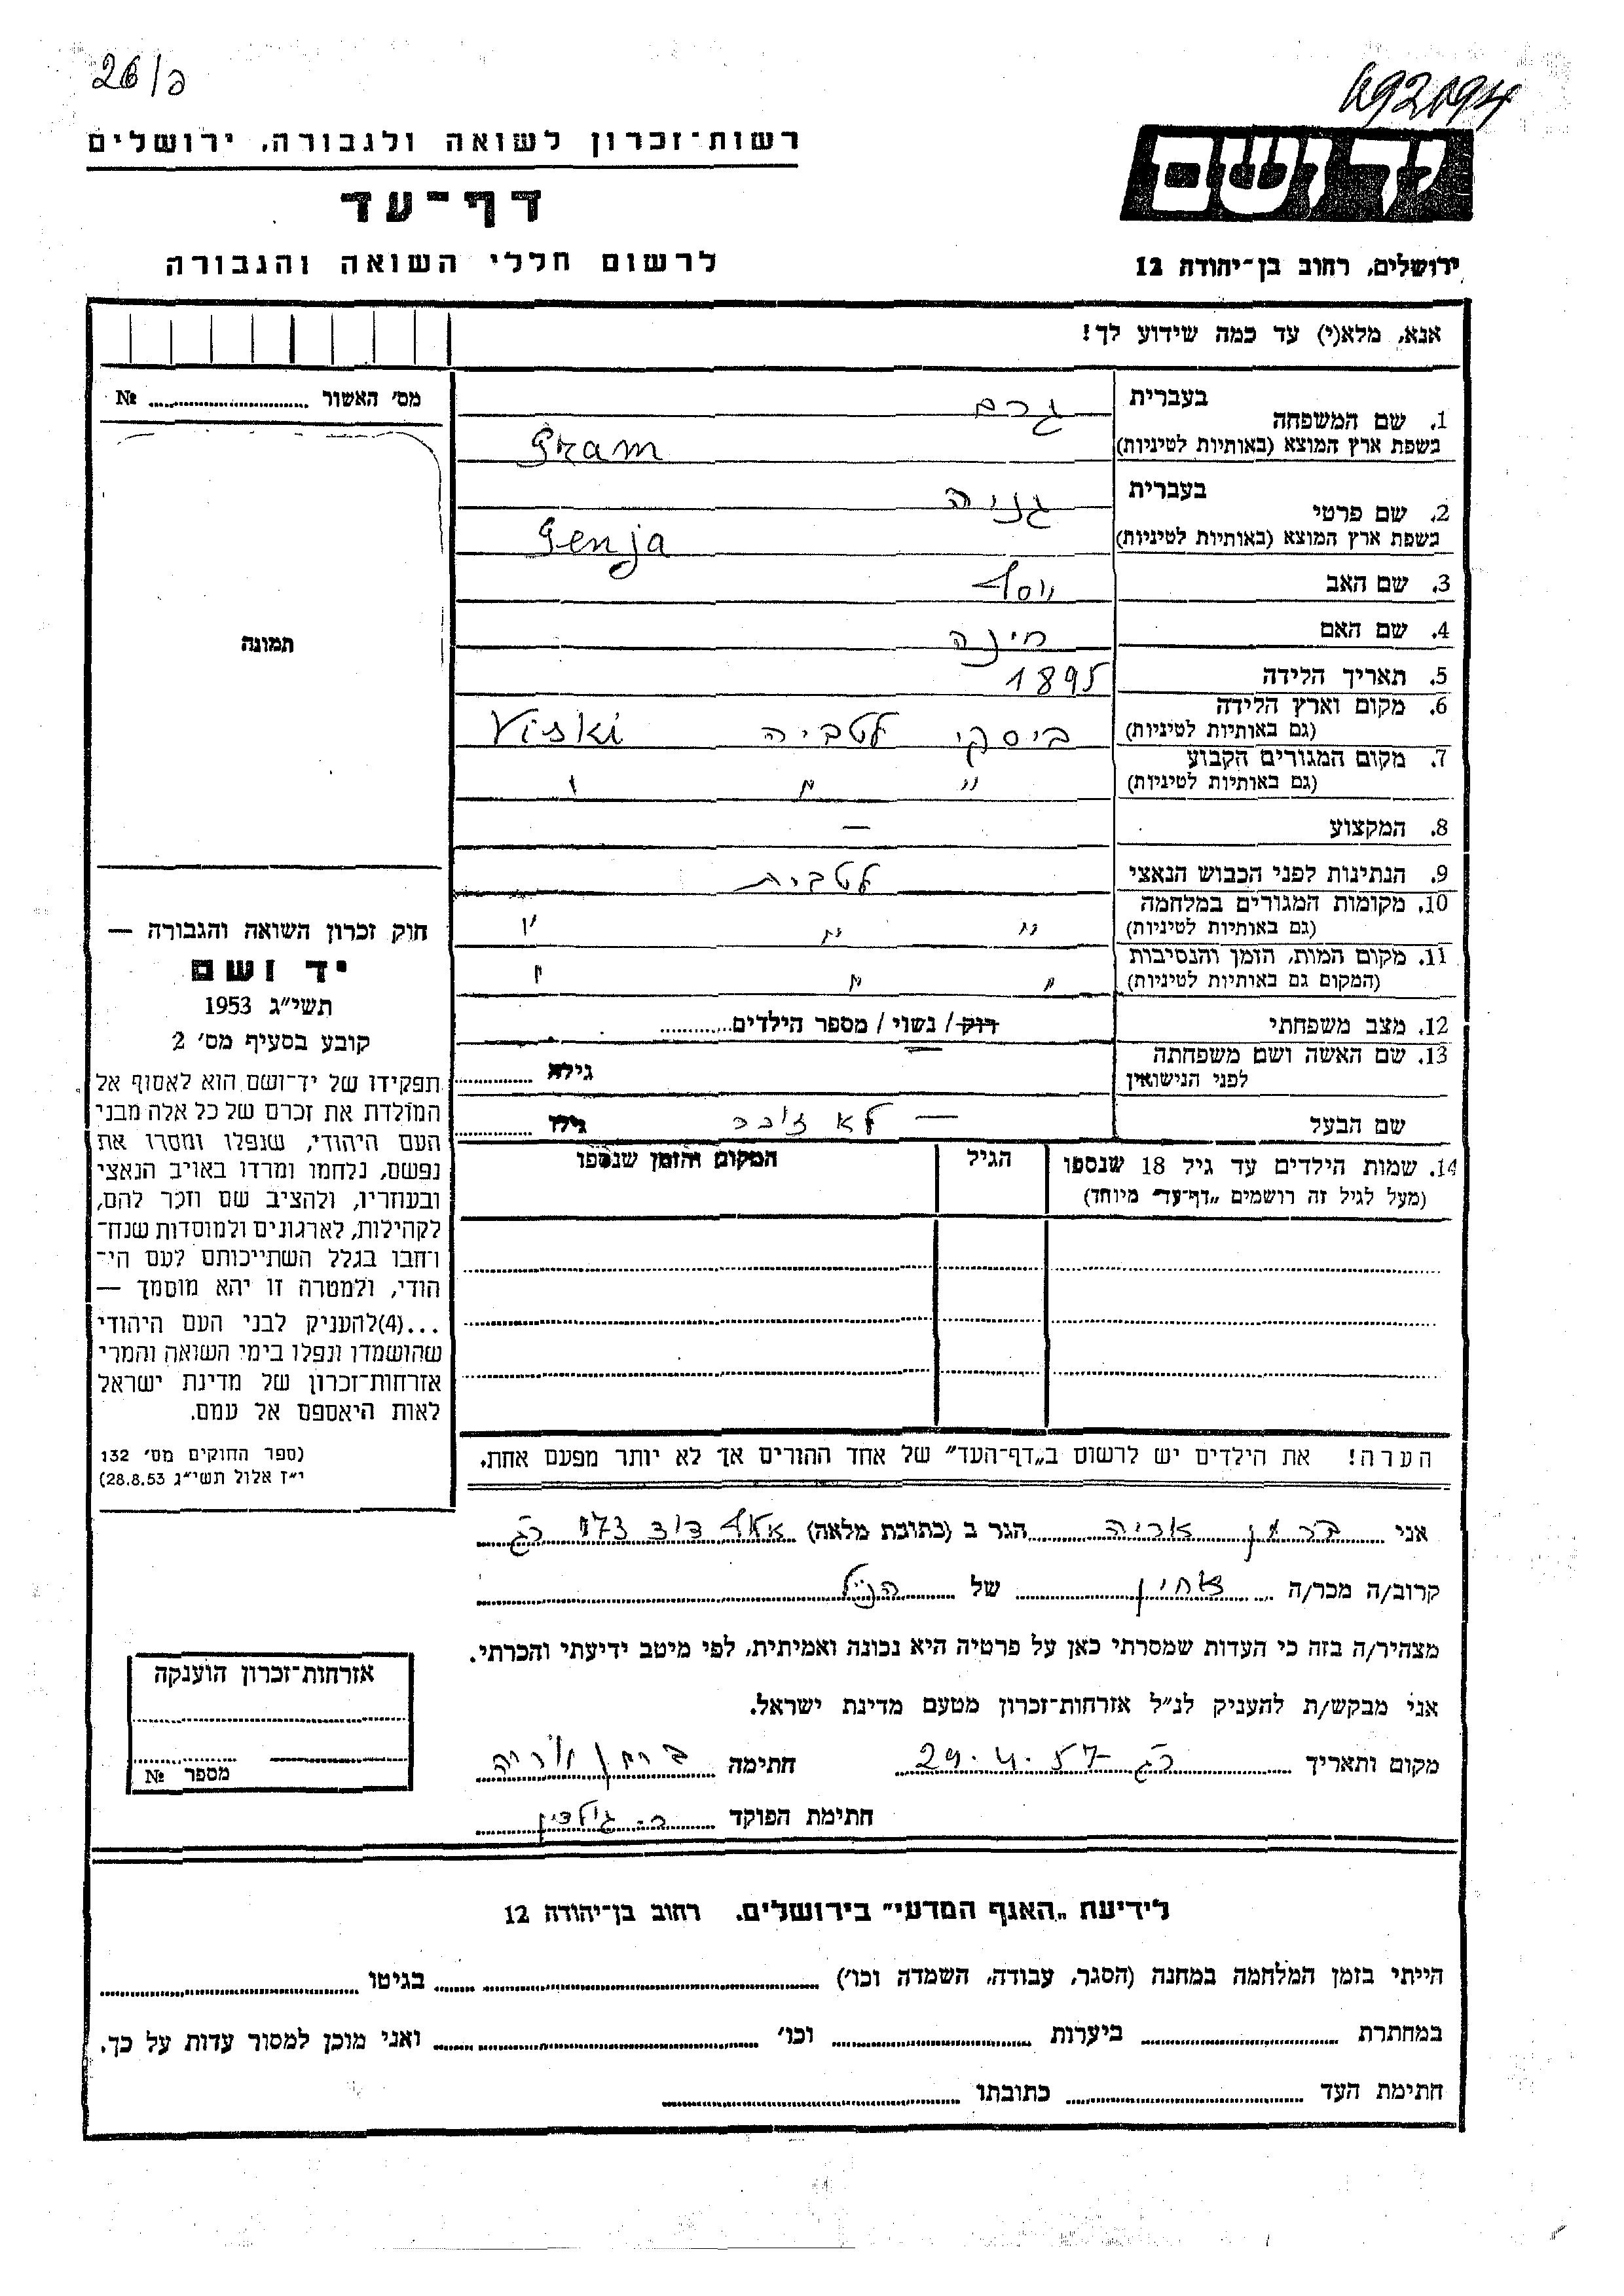 26/ב
692094
רשות־זכרון לשואה ולגבורה, ירושלים
יד ושם
דף־עד
לרשום חללי השואה והגבורה
ירושלים, רחוב בן־יהודה 12
אנא, מלא(י) עד כמה שידוע לך!
מס' האשור № 
1. שם המשפחה בעברית גרם
בשפת ארץ המוצא (באותיות לטיניות) Gram
2. שם פרטי בעברית גניה
בשפת ארץ המוצא (באותיות לטיניות) Genja
3. שם האב יוסף
4. שם האם חינה
5. תאריך הלידה 1895
6. מקום וארץ הלידה ביסקי לטביה Viski
(גם באותיות לטיניות)
7. מקום המגורים הקבוע " " "
(גם באותיות לטיניות)
8. המקצוע —
9. הנתינות לפני הכבוש הנאצי לטבית
10. מקומות המגורים במלחמה " " "
(גם באותיות לטיניות)
11. מקום המות, הזמן והנסיבות " " "
(המקום גם באותיות לטיניות)
12. מצב משפחתי רוק / נשוי / מספר הילדים
13. שם האשה ושם משפחתה — גילה
לפני הנישואין
שם הבעל — לא זוכר גילו
14. שמות הילדים עד גיל 18 שנספו הגיל המקום והזמן שנספו
(מעל לגיל זה רושמים „דף־עד" מיוחד)
הערה! את הילדים יש לרשום ב„דף־העד" של אחד ההורים אך לא יותר מפעם אחת.
תמונה
חוק זכרון השואה והגבורה —
יד ושם
תשי"ג 1953
קובע בסעיף מס' 2
תפקידו של יד־ושם הוא לאסוף אל
המולדת את זכרם של כל אלה מבני
העם היהודי, שנפלו ומסרו את
נפשם, נלחמו ומרדו באויב הנאצי
ובעוזריו, ולהציב שם וזכר להם,
לקהילות, לארגונים ולמוסדות שנח־
רבו בגלל השתייכותם לעם הי־
הודי, ולמטרה זו יהא מוסמך —
...(4)להעניק לבני העם היהודי
שהושמדו ונפלו בימי השואה והמרי
אזרחות־זכרון של מדינת ישראל
לאות היאספם אל עמם.
(ספר החוקים מס' 132
י"ז אלול תשי"ג 28.8.53)
אני ברמן אריה הגר ב (כתובת מלאה) דוד 173 רג
קרוב/ה מכר/ה אחין של הנ"ל
מצהיר/ה בזה כי העדות שמסרתי כאן על פרטיה היא נכונה ואמיתית, לפי מיטב ידיעתי והכרתי.
אני מבקש/ת להעניק לנ"ל אזרחות־זכרון מטעם מדינת ישראל.
מקום ותאריך רג 29.4.57 חתימה ברמן אריה
חתימת הפוקד
אזרחות־זכרון הוענקה
מספר №
לידיעת „האגף המדעי" בירושלים. רחוב בן־יהודה 12
הייתי בזמן המלחמה במחנה (הסגר, עבודה, השמדה וכו') בגיטו
במחתרת ביערות וכו' ואני מוכן למסור עדות על כך.
חתימת העד כתובתו